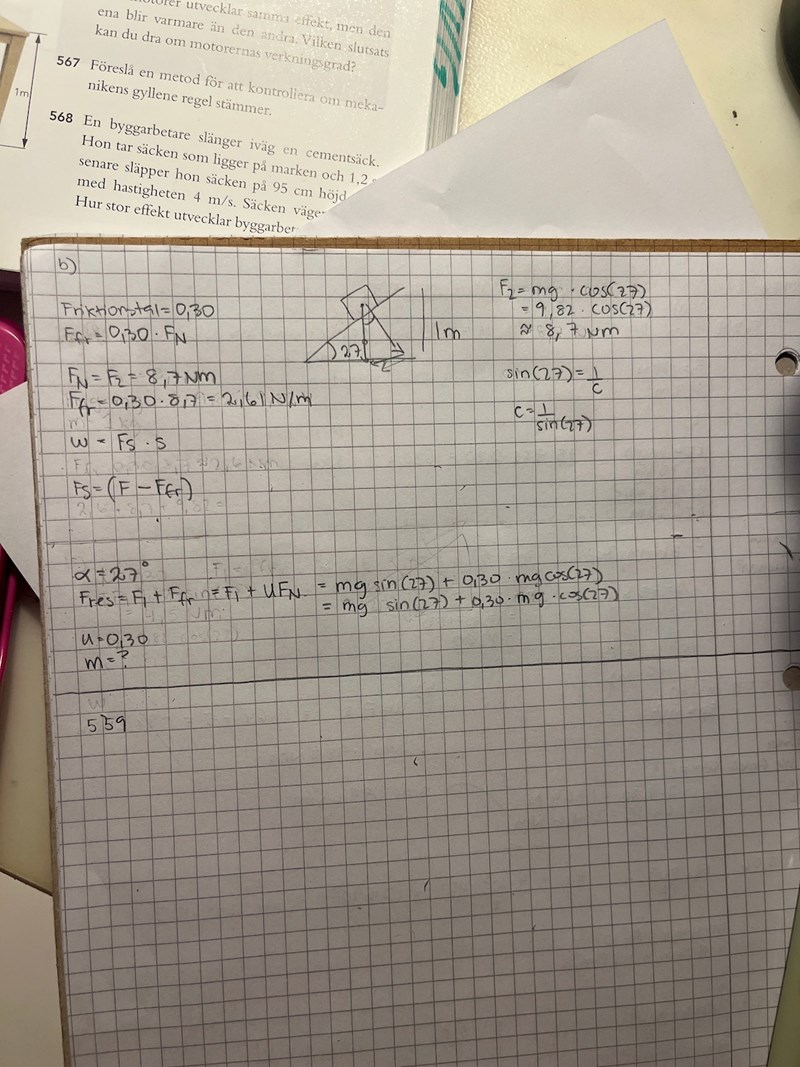 utvecklar samma effekt, men den
ena blir varmare än den andra. Vilken slutsats
kan du dra om motorernas verkningsgrad?
567 Föreslå en metod för att kontrollera om meka-
nikens gyllene regel stämmer.
1m
568 En byggarbetare slänger iväg en cementsäck.
Hon tar säcken som ligger på marken och 1,2
senare släpper hon säcken på 95 cm höjd
med hastigheten 4 m/s. Säcken väger
Hur stor effekt utvecklar byggarbet
b)
Friktionstal = 0,30
Ffr = 0,30 · FN
FN = F2 = 8,7 Nm
Ffr = 0,30 · 8,7 = 2,61 N/m
W = Fs · s
Fs = (F - Ffr)
27
1m
F2 = mg · cos(27)
= 9,82 · cos(27)
≈ 8,7 Nm
sin(27) = 1/c
c = 1/sin(27)
α = 27°
Fres = F1 + Ffr = F1 + UFN = mg sin(27) + 0,30 · mg cos(27)
= mg sin(27) + 0,30 · mg · cos(27)
u = 0,30
m = ?
559